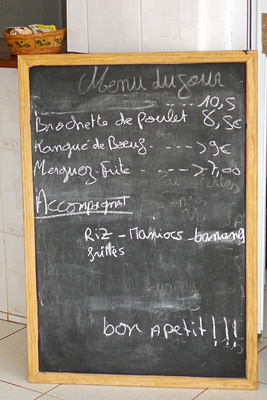 Menu du jour
---- 10,5
Brochette de poulet 8,5€
Kangué de Boeuf ----> 9€
Merguez-Frite -----> 7,00
Accompagnat
Riz - Maniocs - banane
frittes
bon apetit!!!